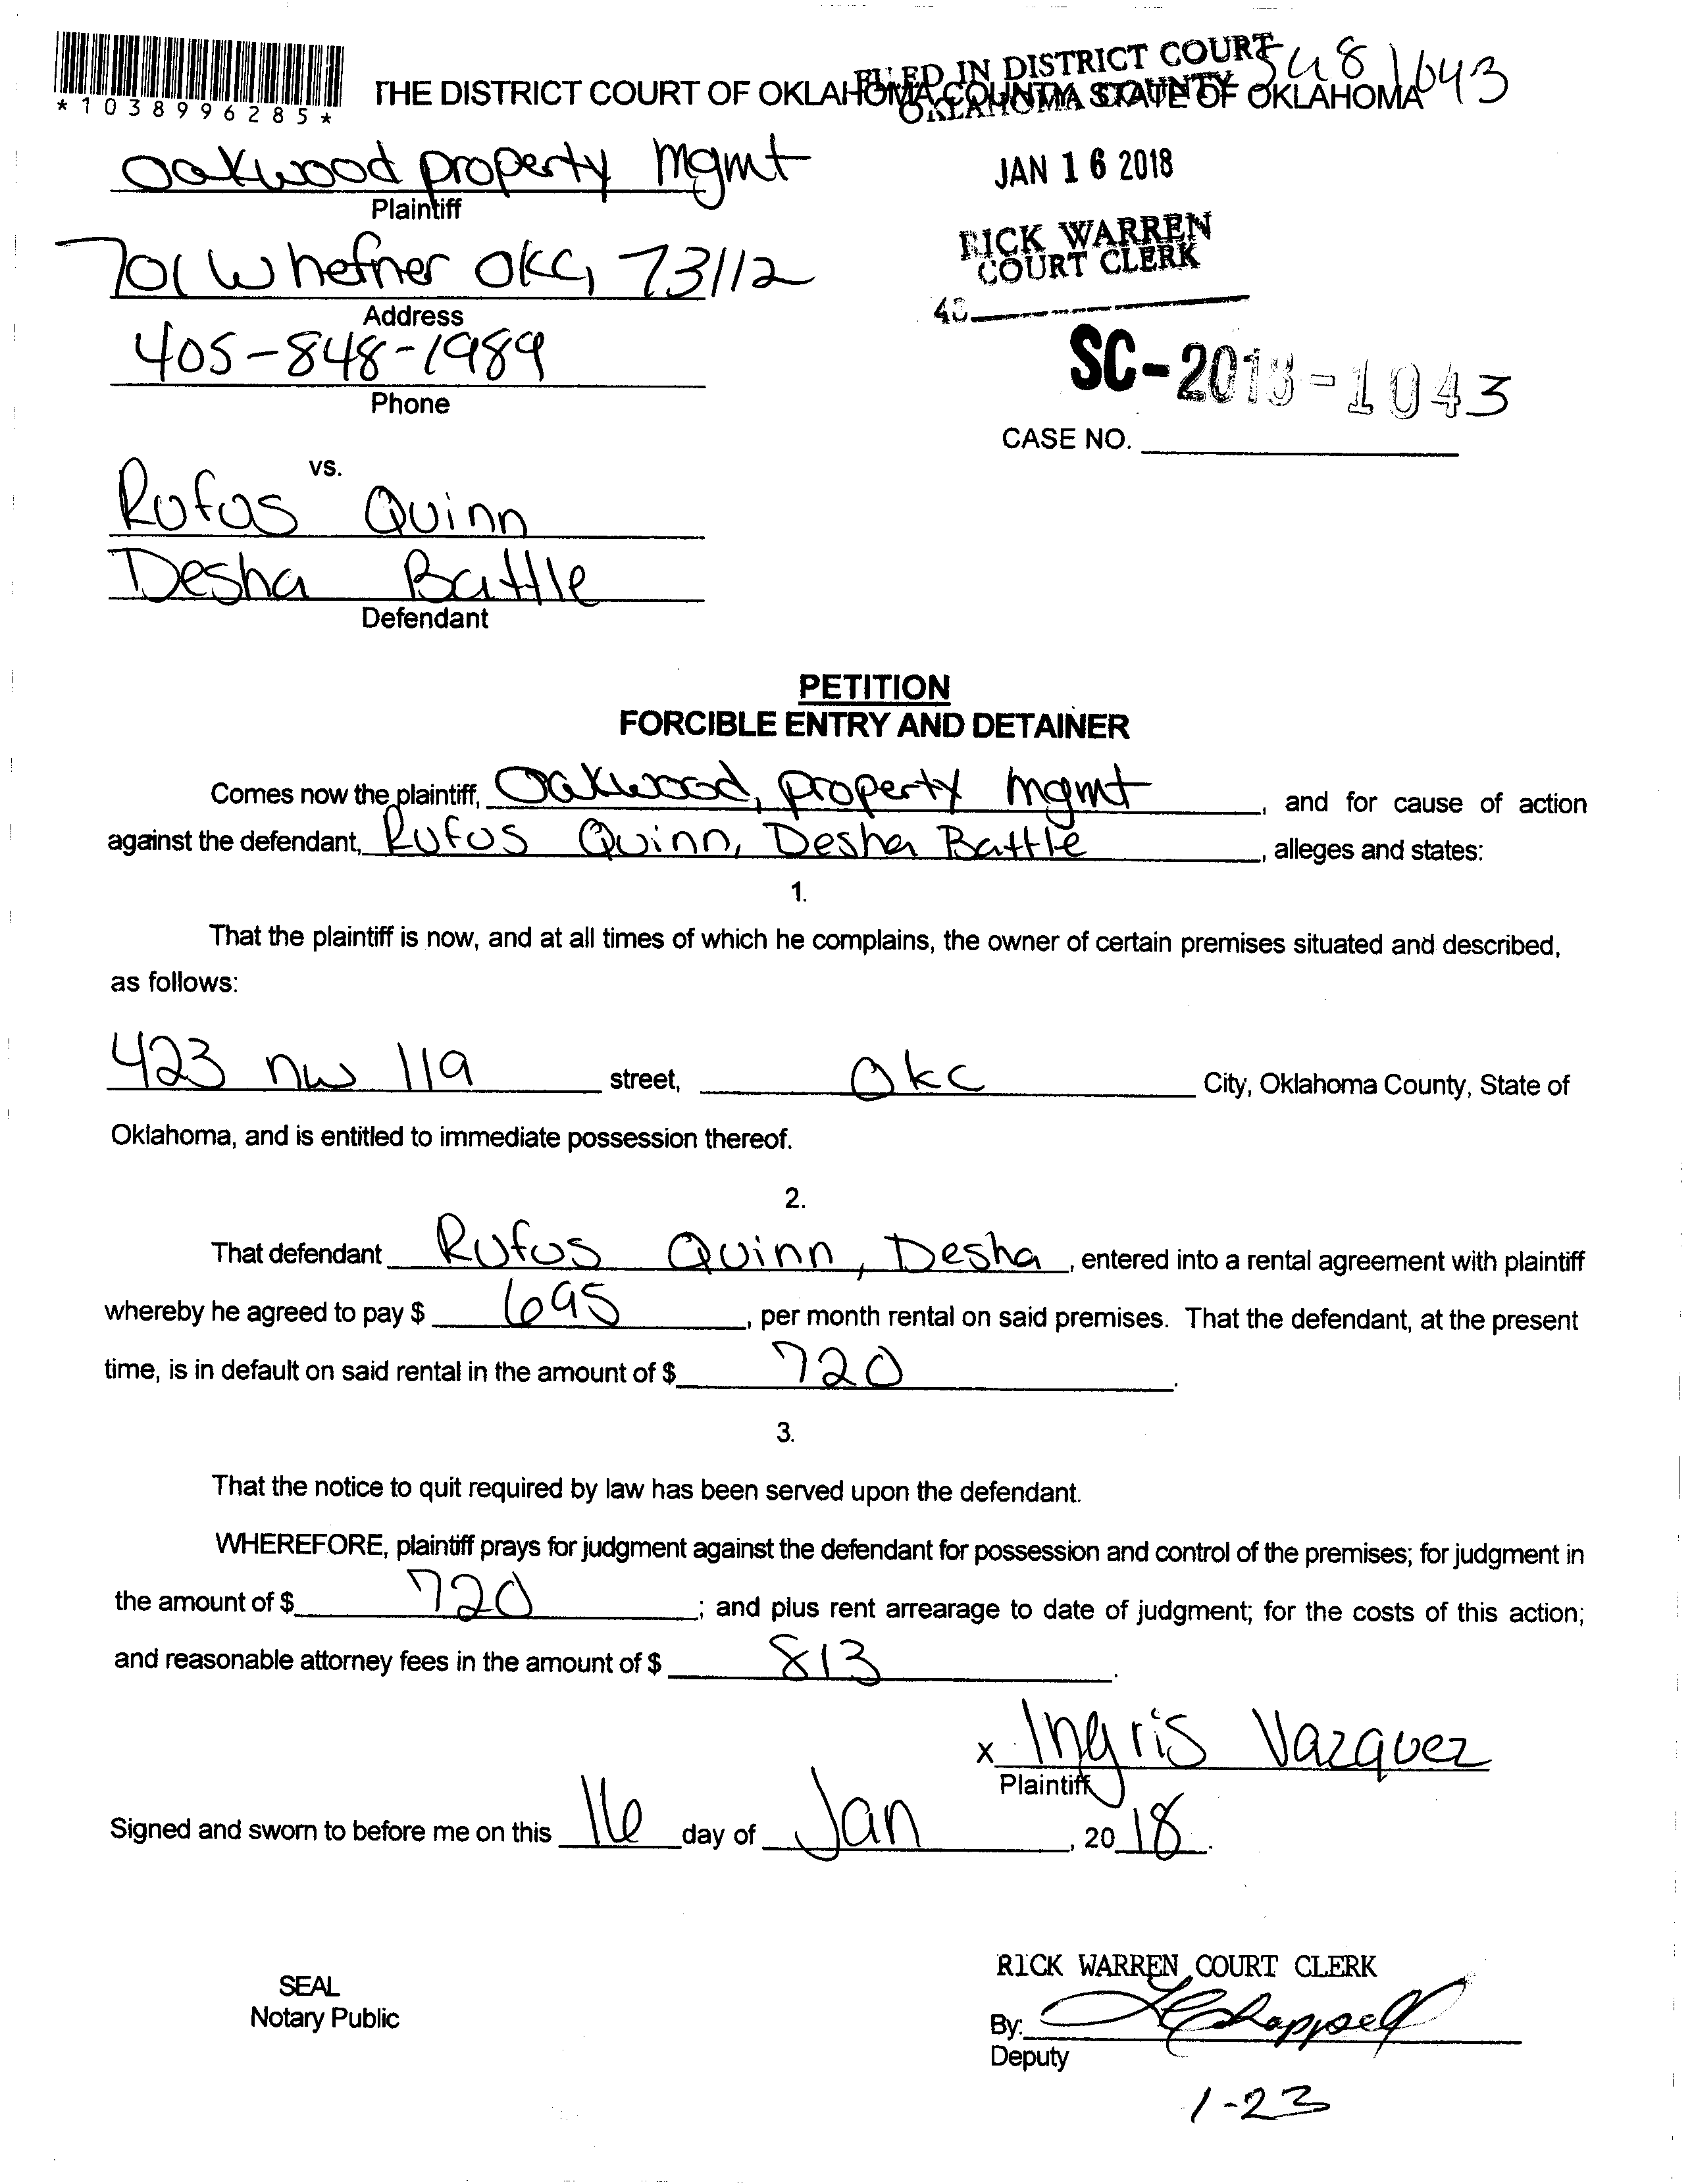 *1038996285*
THE DISTRICT COURT OF OKLAHOMA COUNTY, STATE OF OKLAHOMA
FILED IN DISTRICT COURT
OKLAHOMA COUNTY
Oakwood property mgmt
Plaintiff
JAN 16 2018
701 W hefner OKC, 73112
Address
RICK WARREN
COURT CLERK
405-848-1989
Phone
SC-2018-1043
CASE NO.
vs.
Rufus Quinn
Desha Battle
Defendant
PETITION
FORCIBLE ENTRY AND DETAINER
Comes now the plaintiff, Oakwood, property mgmt, and for cause of action
against the defendant, Rufus Quinn, Desha Battle, alleges and states:
1.
That the plaintiff is now, and at all times of which he complains, the owner of certain premises situated and described,
as follows:
423 nw 119 street, Okc City, Oklahoma County, State of
Oklahoma, and is entitled to immediate possession thereof.
2.
That defendant Rufus Quinn, Desha, entered into a rental agreement with plaintiff
whereby he agreed to pay $ 695, per month rental on said premises. That the defendant, at the present
time, is in default on said rental in the amount of $ 720.
3.
That the notice to quit required by law has been served upon the defendant.
WHEREFORE, plaintiff prays for judgment against the defendant for possession and control of the premises; for judgment in
the amount of $ 720; and plus rent arrearage to date of judgment; for the costs of this action;
and reasonable attorney fees in the amount of $ 813.
x Ingris Vazquez
Plaintiff
Signed and sworn to before me on this 16 day of Jan, 20 18.
RICK WARREN COURT CLERK
SEAL
Notary Public
By: Chappell
Deputy
1-23